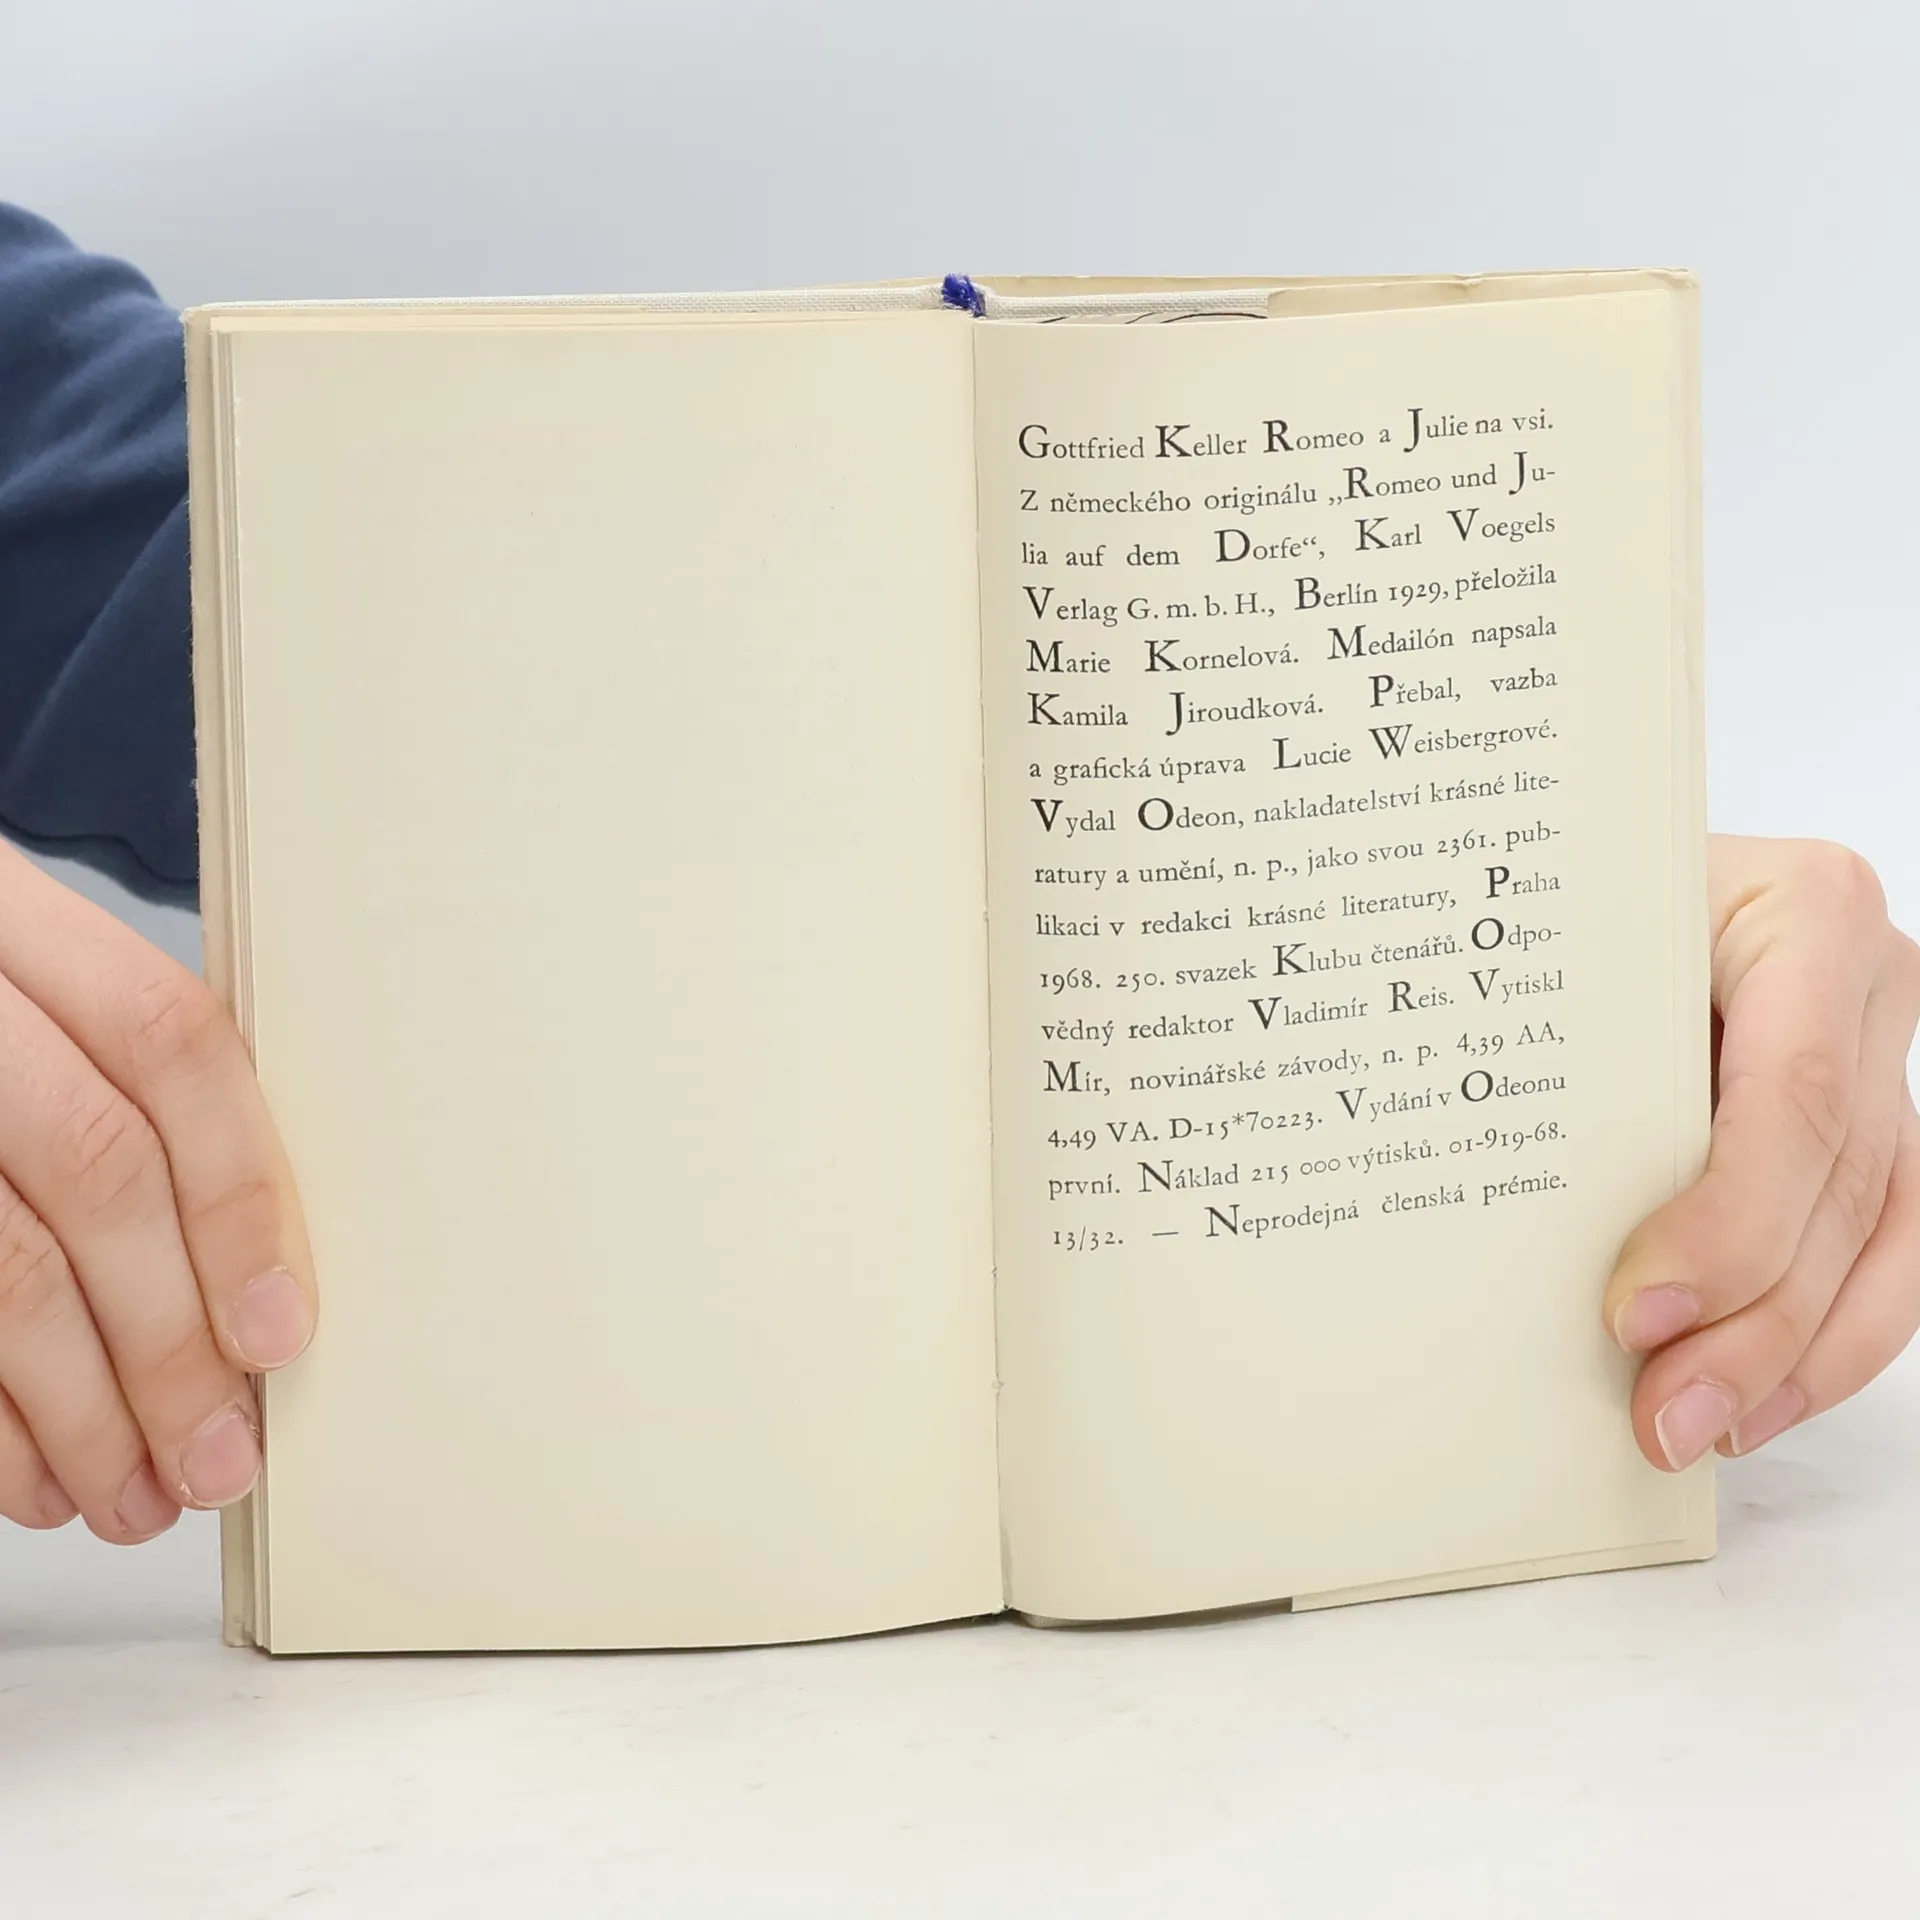 Gottfried Keller Romeo a Julie na vsi.
Z německého originálu „Romeo und Ju-
lia auf dem Dorfe“, Karl Voegels
Verlag G. m. b. H., Berlín 1929, přeložila
Marie Kornelová. Medailón napsala
Kamila Jiroudková. Přebal, vazba
a grafická úprava Lucie Weisbergrové.
Vydal Odeon, nakladatelství krásné lite-
ratury a umění, n. p., jako svou 2361. pub-
likaci v redakci krásné literatury, Praha
1968. 250. svazek Klubu čtenářů. Odpo-
vědný redaktor Vladimír Reis. Vytiskl
Mír, novinářské závody, n. p. 4,39 AA,
4,49 VA. D-15*70223. Vydání v Odeonu
první. Náklad 215 000 výtisků. 01-919-68.
13/32. — Neprodejná členská prémie.